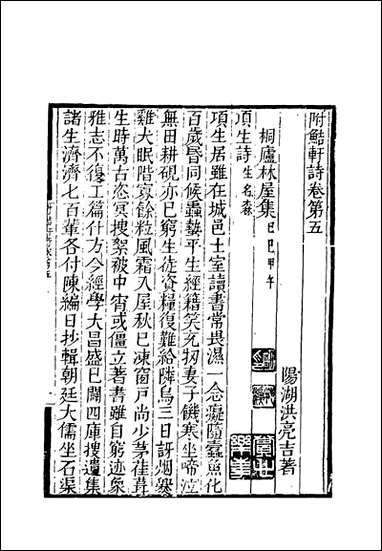 附鮚軒詩卷第五
陽湖洪亮吉著
桐廬林屋集 己巳甲午
項生詩 生名森
項生居雖在城邑土室讀書常畏濕一念癡隨蠹魚化
百歲昬同候蟲蟄平生經籍笑充牣妻子饑寒坐啼泣
無田耕硯亦已窮生徒資糧復難給隣鳥三日訝烟爨
雞犬眠階裒餘粒風霜入屋秋已凍窗戸尚少茅茬葺
生時萬古恣冥搜絮被中宵或僵立著書雖自窮迹象
雅志不復工篇什方今經學大昌盛已闢四庫搜遺集
諸生濟濟七百輩各付陳編日抄輯朝廷大儒坐石渠